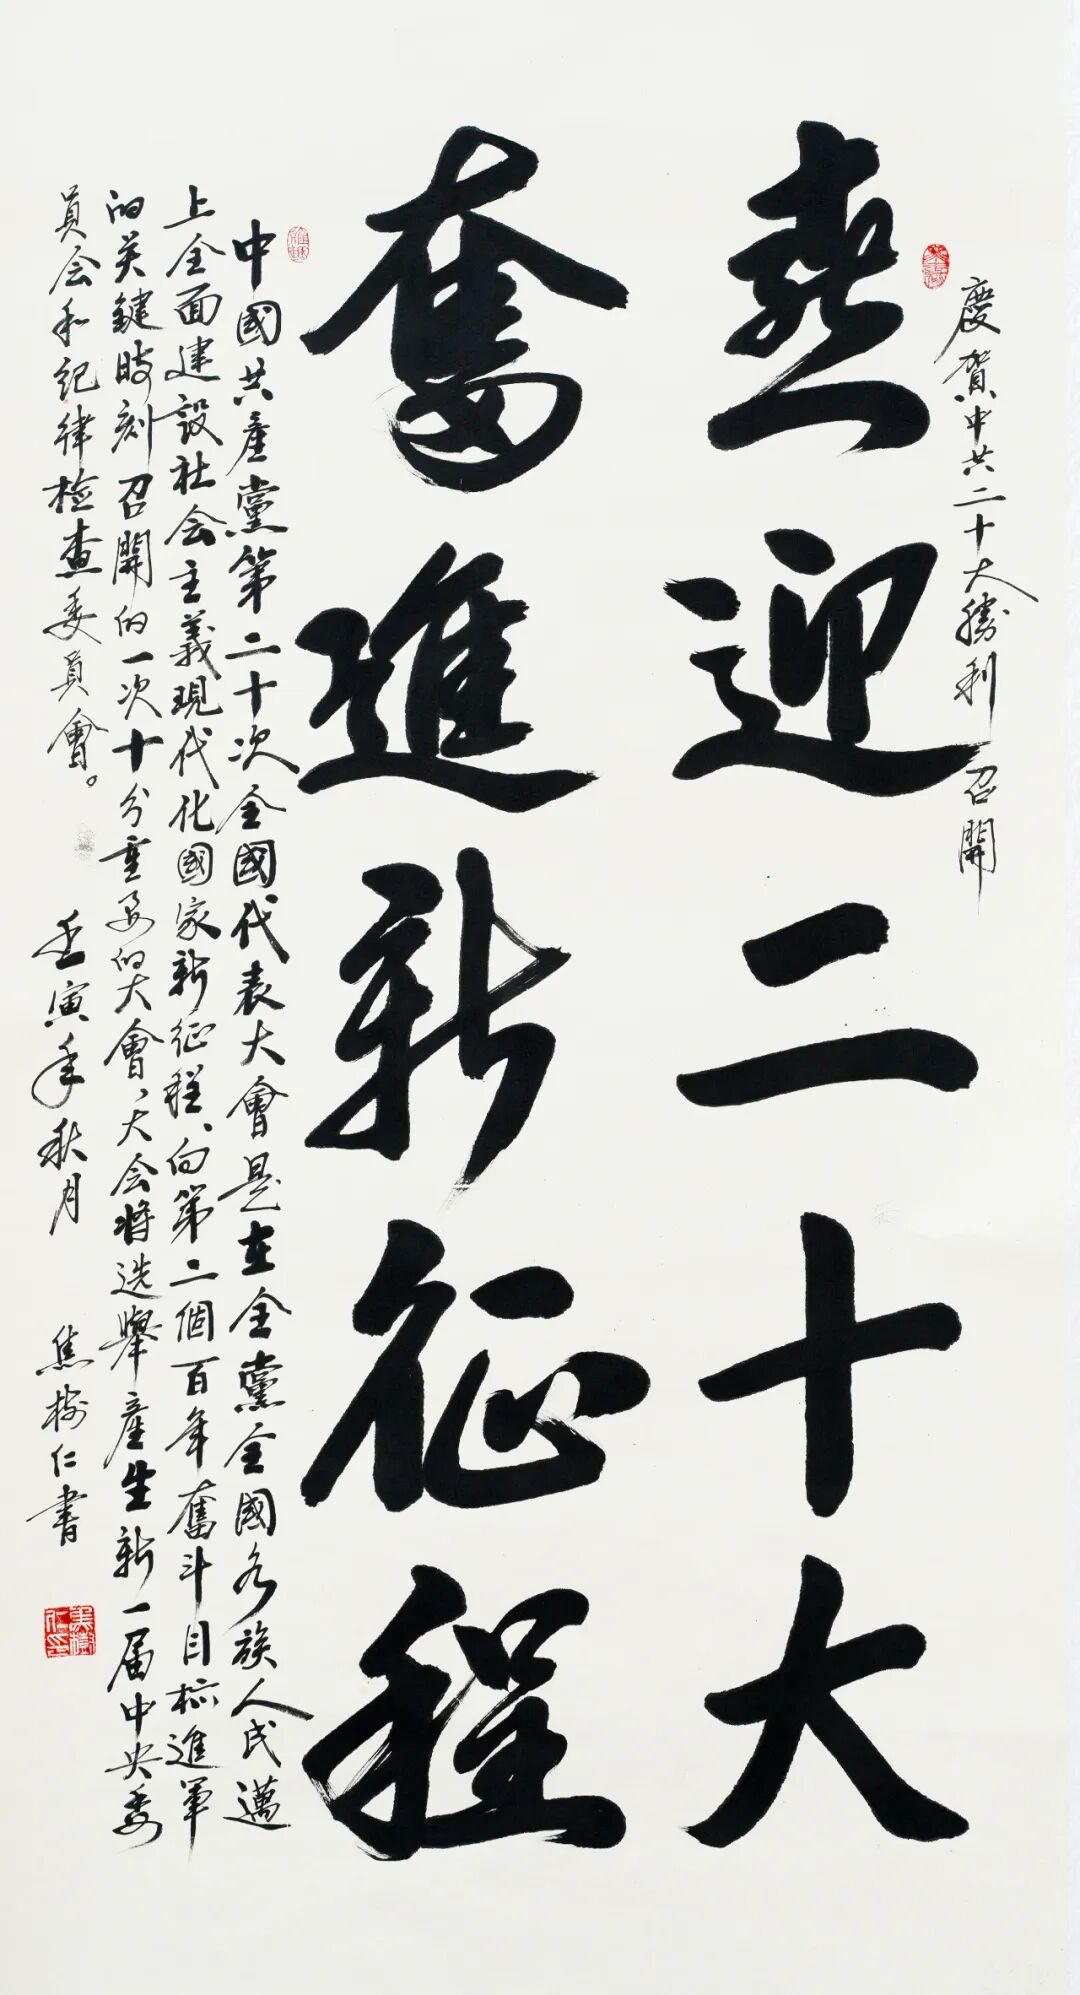 慶賀中共二十大勝利召開
喜迎二十大
奮進新征程
中國共產黨第二十次全國代表大會是在全黨全國各族人民邁
上全面建設社会主義現代化國家新征程、向第二個百年奮斗目标進軍
的关鍵時刻召開的一次十分重要的大會、大会将选舉產生新一届中央委
員会和纪律检查委員會。 壬寅年秋月 焦树仁書